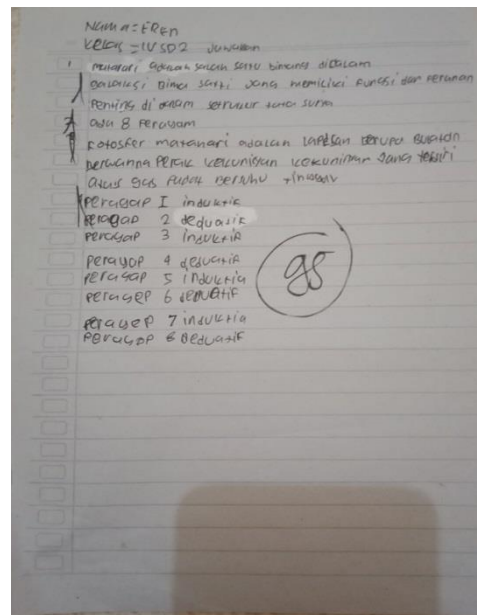 Nama = EREN
Kelas = IV SD2 Juwalan
1 matahari adalah salah satu bintang didalam
galaksi Bima Sakti yang memiliki fungsi dan Peranan
Penting di dalam setruktur tata surya
ada 8 Peragam
Fotosfer matahari adalah lapisan berupa Buatan
berwarna Perak kekuningan kekuningan yang terdiri
atas gas Padat Bersuhu tinggi
Peragap I induktif
Peragap 2 deduktif
Peragap 3 induktif
Peragap 4 deduktif
Peragap 5 induktif
Peragep 6 deduktif
Peragep 7 induktif
Peragop 8 Deduktif
95